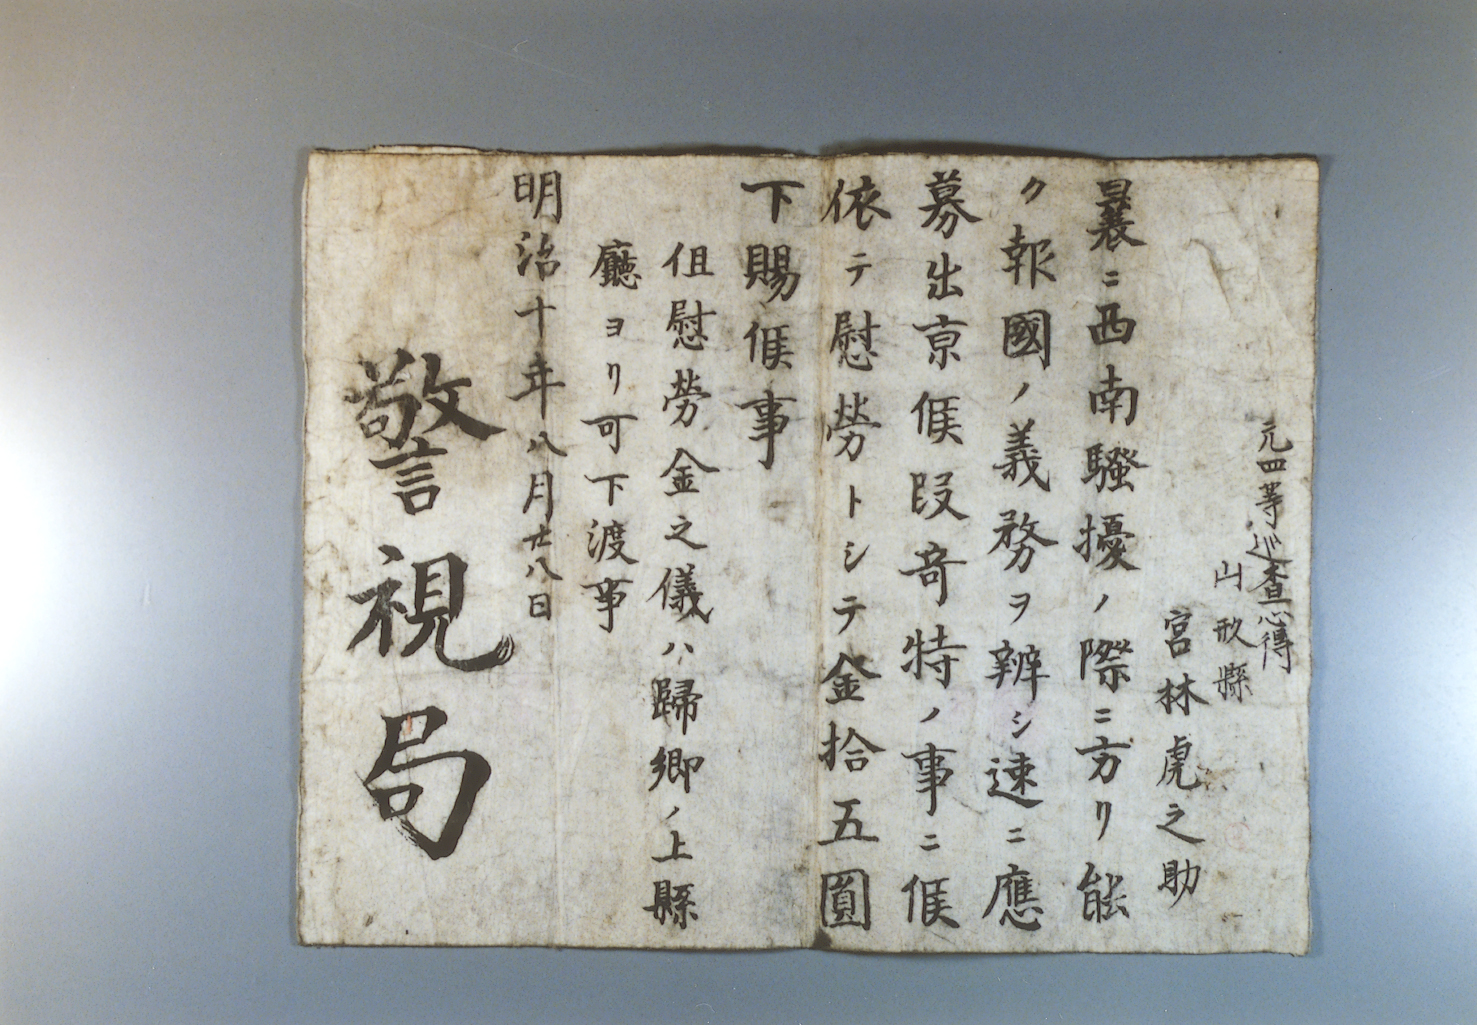 元四等巡査心得
山形縣
宮林虎之助
曩ニ西南騒擾ノ際ニ方リ能
ク報國ノ義務ヲ辨シ速ニ應
募出京候段奇特ノ事ニ候
依テ慰勞トシテ金拾五圓
下賜候事
但慰勞金之儀ハ歸郷ノ上縣
廳ヨリ可下渡事
明治十年八月廿八日
警視局